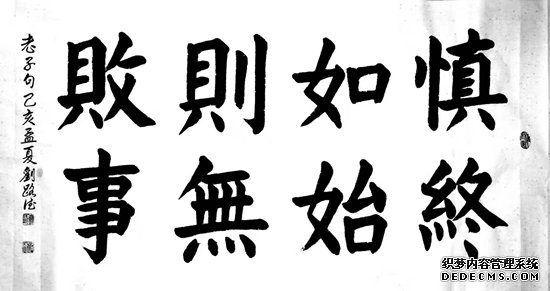 慎終
如始
則無
敗事
老子句乙亥孟夏劉路德
织梦内容管理系统
DEDECMS.COM